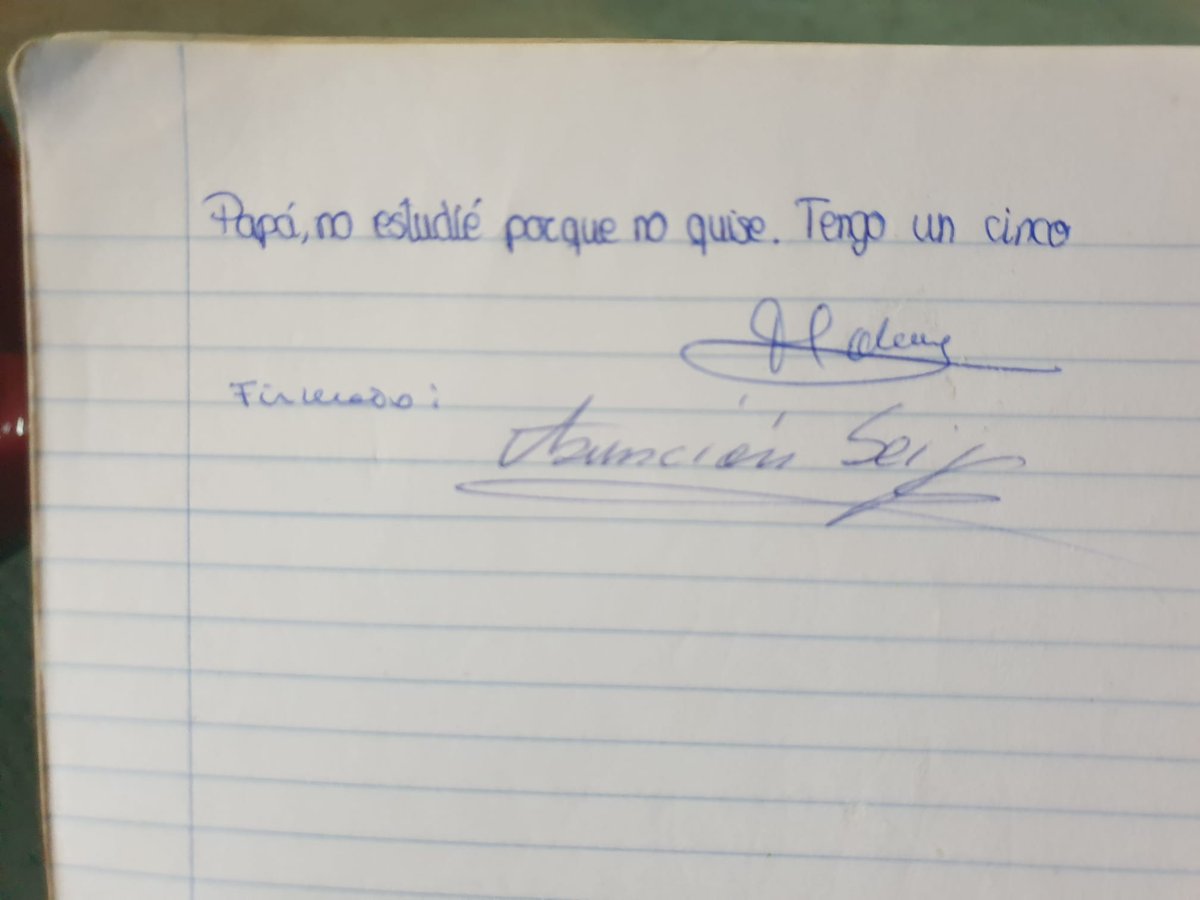 Papá, no estudié porque no quise. Tengo un cinco
Firmado:
Asunción Seij